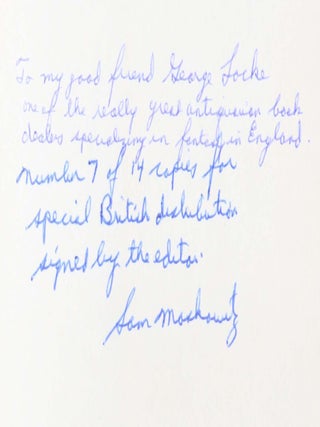 To my good friend George Locke
one of the really great antiquarian book
dealers specializing in fantasy in England.
Number 7 of 14 copies for
special British distribution
signed by the editor.
Sam Moskowitz